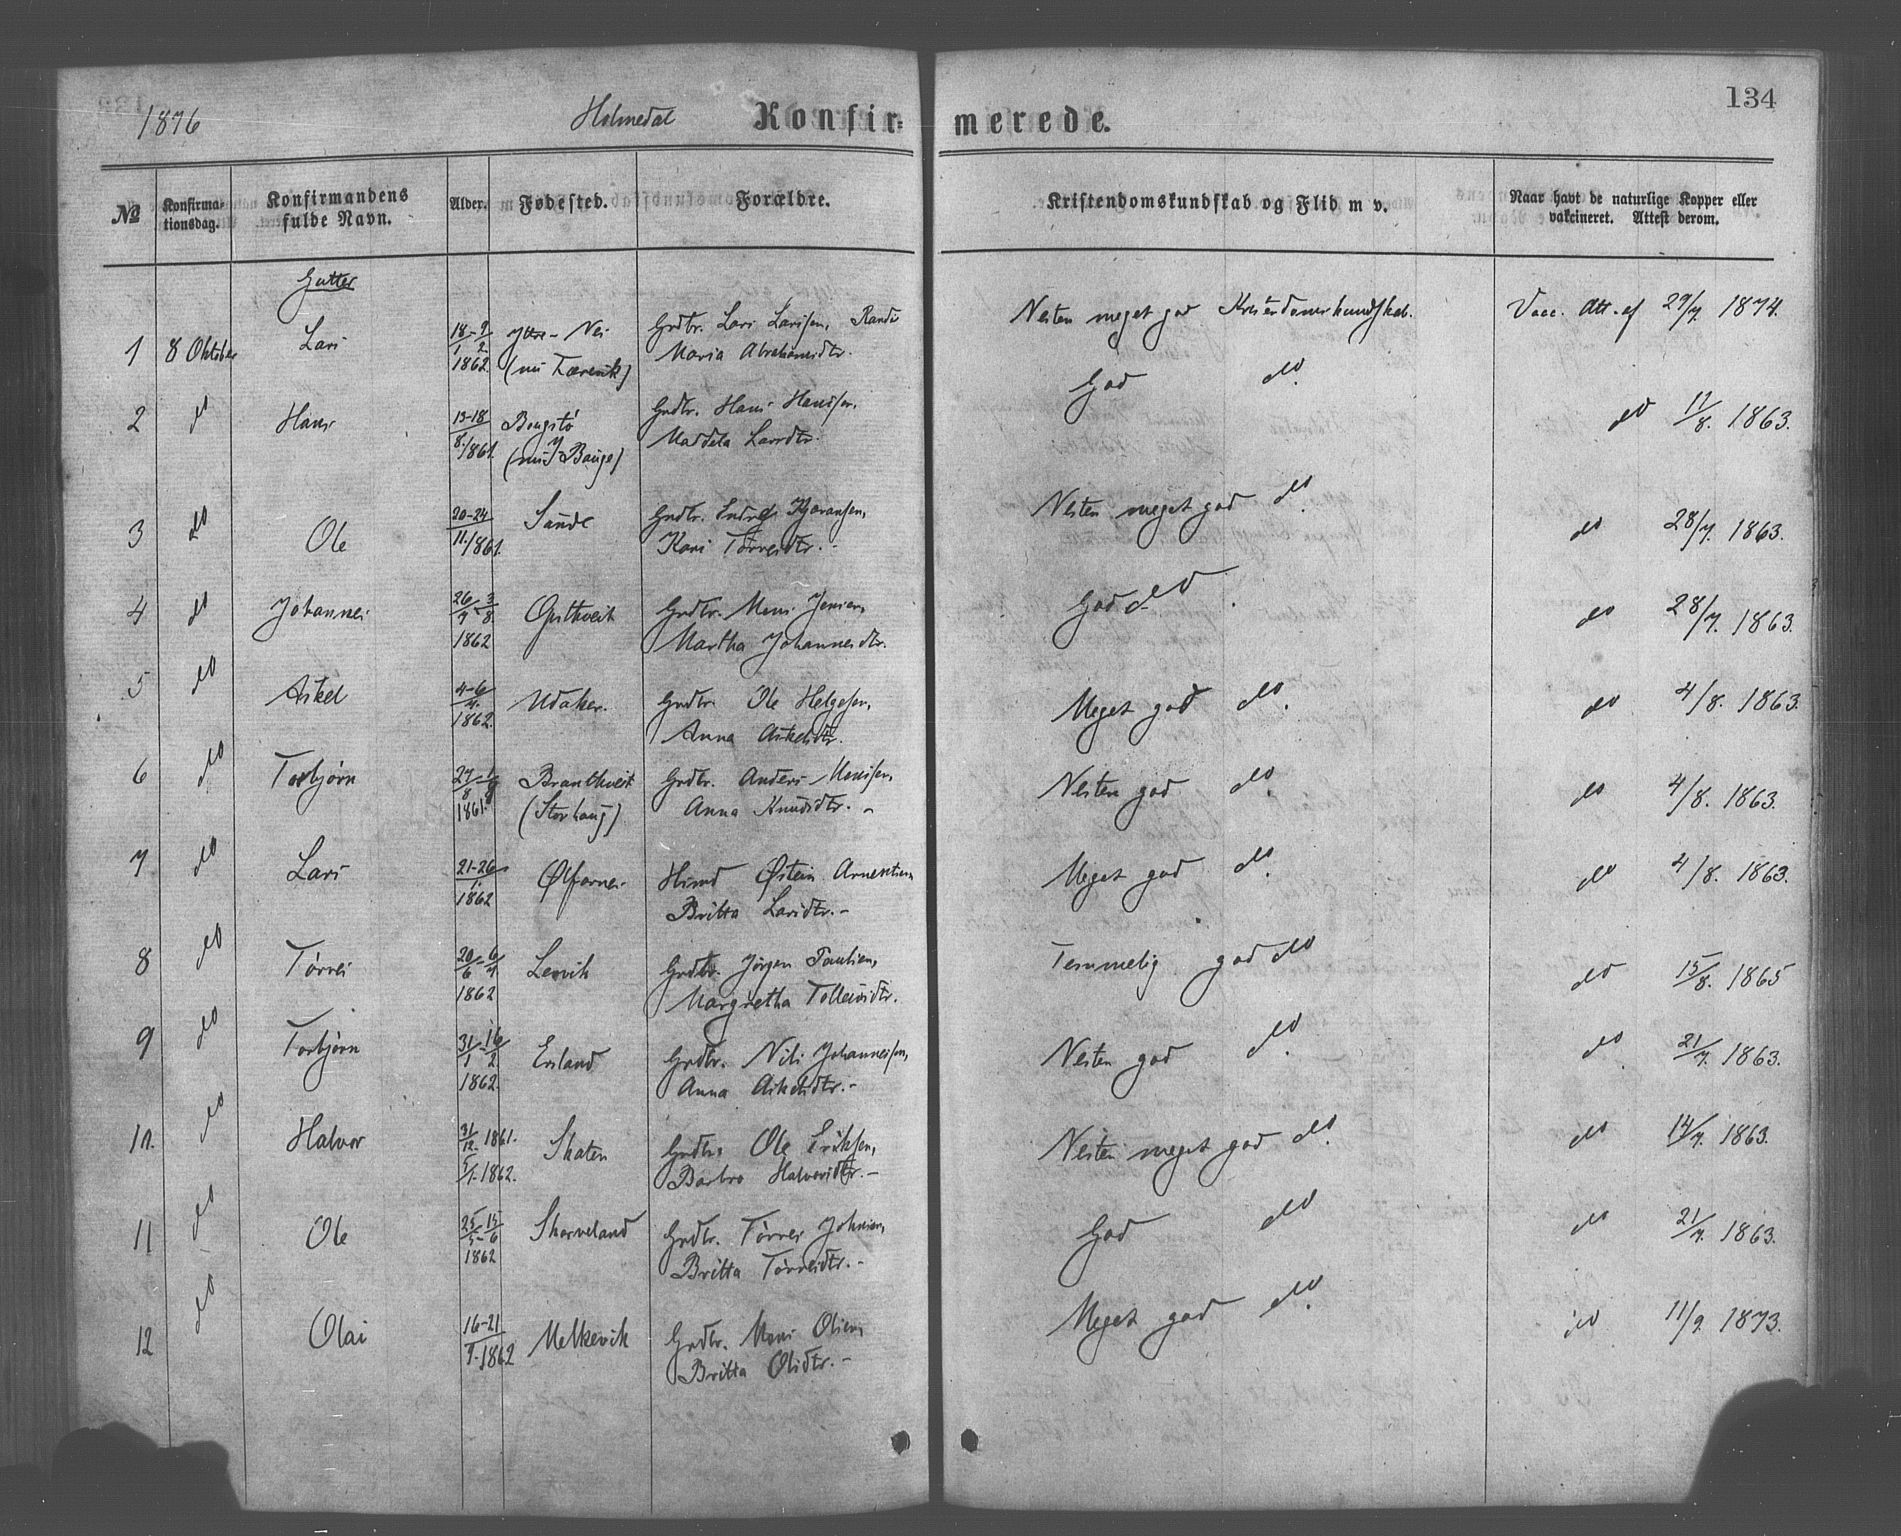 134
1876 Holmedal Konfirmerede.
№ Konfirmationsdag. Konfirmandens fulde Navn. Alder. Fødested. Forældre. Kristendomskundskab og Flid m v. Naar havt de naturlige Kopper eller vakcineret. Attest derom.
Gutter
1 8 Oktober Lars 18/1-9/2 1862 Ytre-Nes Grdbr. Lars Larssen, Rande Nesten meget god Kristendomskundskab. Vacc. Att. af 29/7 1874.
(nu Tærevik) Maria Abrahamsdtr.
2 do Hans 13-18/8. 1861. Grdbr. Hans Hanssen, God do. do 17/8. 1863.
(nu Y. Bauge) Larsdtr.
3 do Ole 20-24/11. 1861. Sande Grdbr. Kari Tørresdtr. - Nesten meget god do. do 28/7. 1863.
4 do Johannes 26/7-3/8 1862 Opsthveit Grdbr. Mons Jensen, God do. do 28/7. 1863.
Martha Johannesdtr.
5 do Askel 4-6/4. 1862. Udaker. Grdbr. Ole Helgesen, Meget god do. do 4/8. 1863.
Anna Askelsdtr.
6 do Torbjørn 27/8 1861. Branthveit Grdbr. Anders Monssen, Nesten god do. do 4/8. 1863.
(Storhaug) Anna Knudsdtr. -
7 do Lars 21-26/1. 1862 Ølfarnes Husmd Østein Arnentsen, Meget god do. do 4/8. 1863.
Britta Larsdtr. -
8 do Tørres 20/6-6/7 1862 Lervik Grdbr. Jørgen Paulsen, Temmelig god do do 15/8. 1865
Margretha Tollevsdtr.
9 do Torbjørn 31/1-16/2 1862. Ersland Grdbr. Nils Johannessen, Nesten god do. do. 21/7. 1863.
Anna Askelsdtr. -
10. do Halvor 31/12. 1861. 5/1. 1862. Skaten Grdbr. Ole Eriksen, Nesten meget god do. do 14/7. 1863.
Barbro Halvorsdtr. -
11 do Ole 25/5-15/6 1862 Skorveland Grdbr. Tørres Johnsen, God do do 21/7. 1863.
Britta Tørresdtr. -
12 do Olai 16-21/9. 1862 Melkevik Grdbr. Mons Olsen, Meget god do. do 11/9. 1873.
Britta Olsdtr. -